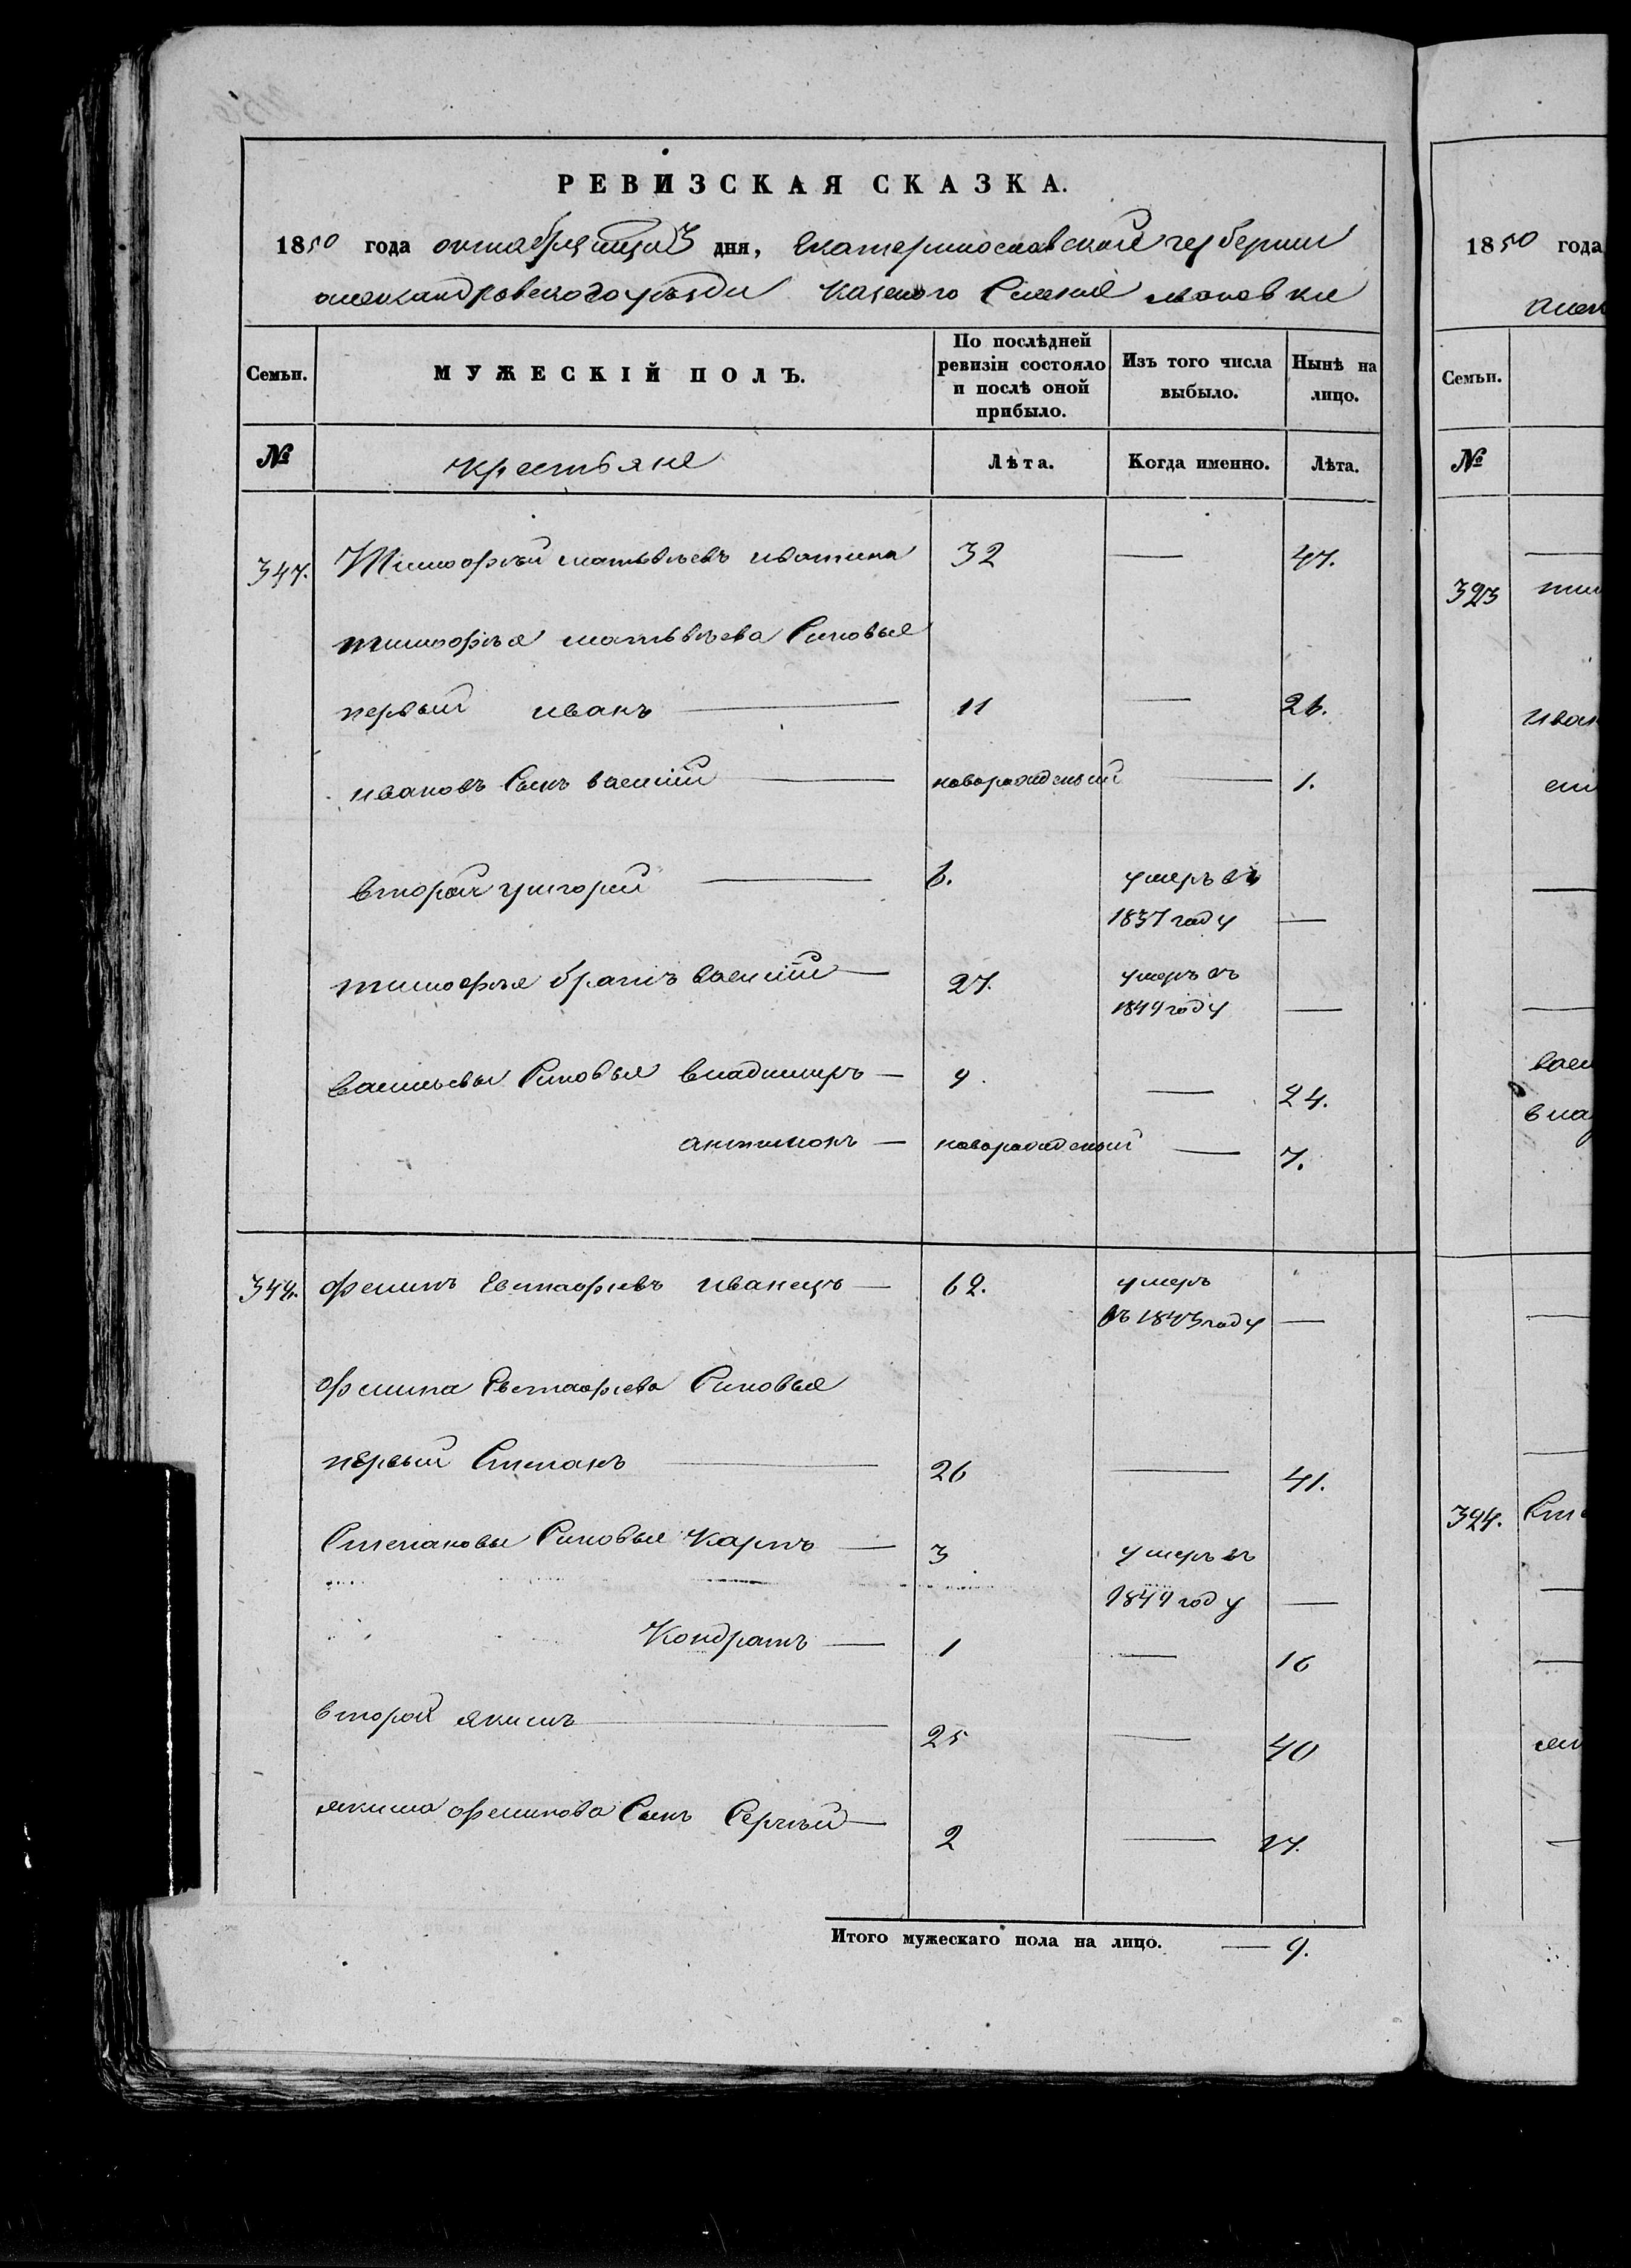 РЕВИЗСКАЯ СКАЗКА.
1850 года октября месяца 3 дня, Екатеринославской губернии
александровского уѣзда казеного Селения маковки
Семьи.
МУЖЕСКІЙ ПОЛЪ.
По послѣдней ревизіи состояло и послѣ оной прибыло.
Изъ того числа выбыло.
Нынѣ на лицо.
№ крестьяне Лѣта. Когда именно. Лѣта.
347. Тимофѣй матвѣевъ 32 — 47.
тимофѣя матвѣева Синовья
первый иванъ — 11 — 26.
ивановъ Сынъ василій — новорожденый — 1.
второй григорий — 6. умеръ въ
1837 году —
тимофѣя братъ василій — 27. умеръ въ
1849 году —
васильевы Синовья владимиръ — 9. — 24.
антипонъ — новорожденый — 7.
344. филипъ Евстафіевъ иванецъ — 62. умеръ
въ 1843 году —
филипа Евстафіева Синовья
первый Степанъ — 26 — 41.
Степановы Синовья Карпъ — 3 умеръ въ
1849 году —
Кондратъ — 1 — 16
второй якимъ — 25 — 40
якима филипова Сынъ Сергѣй — 2 — 17.
Итого мужескаго пола на лицо. — 9.
1850 года
Семьи.
№
323
иван
васи
влад
324. Сте